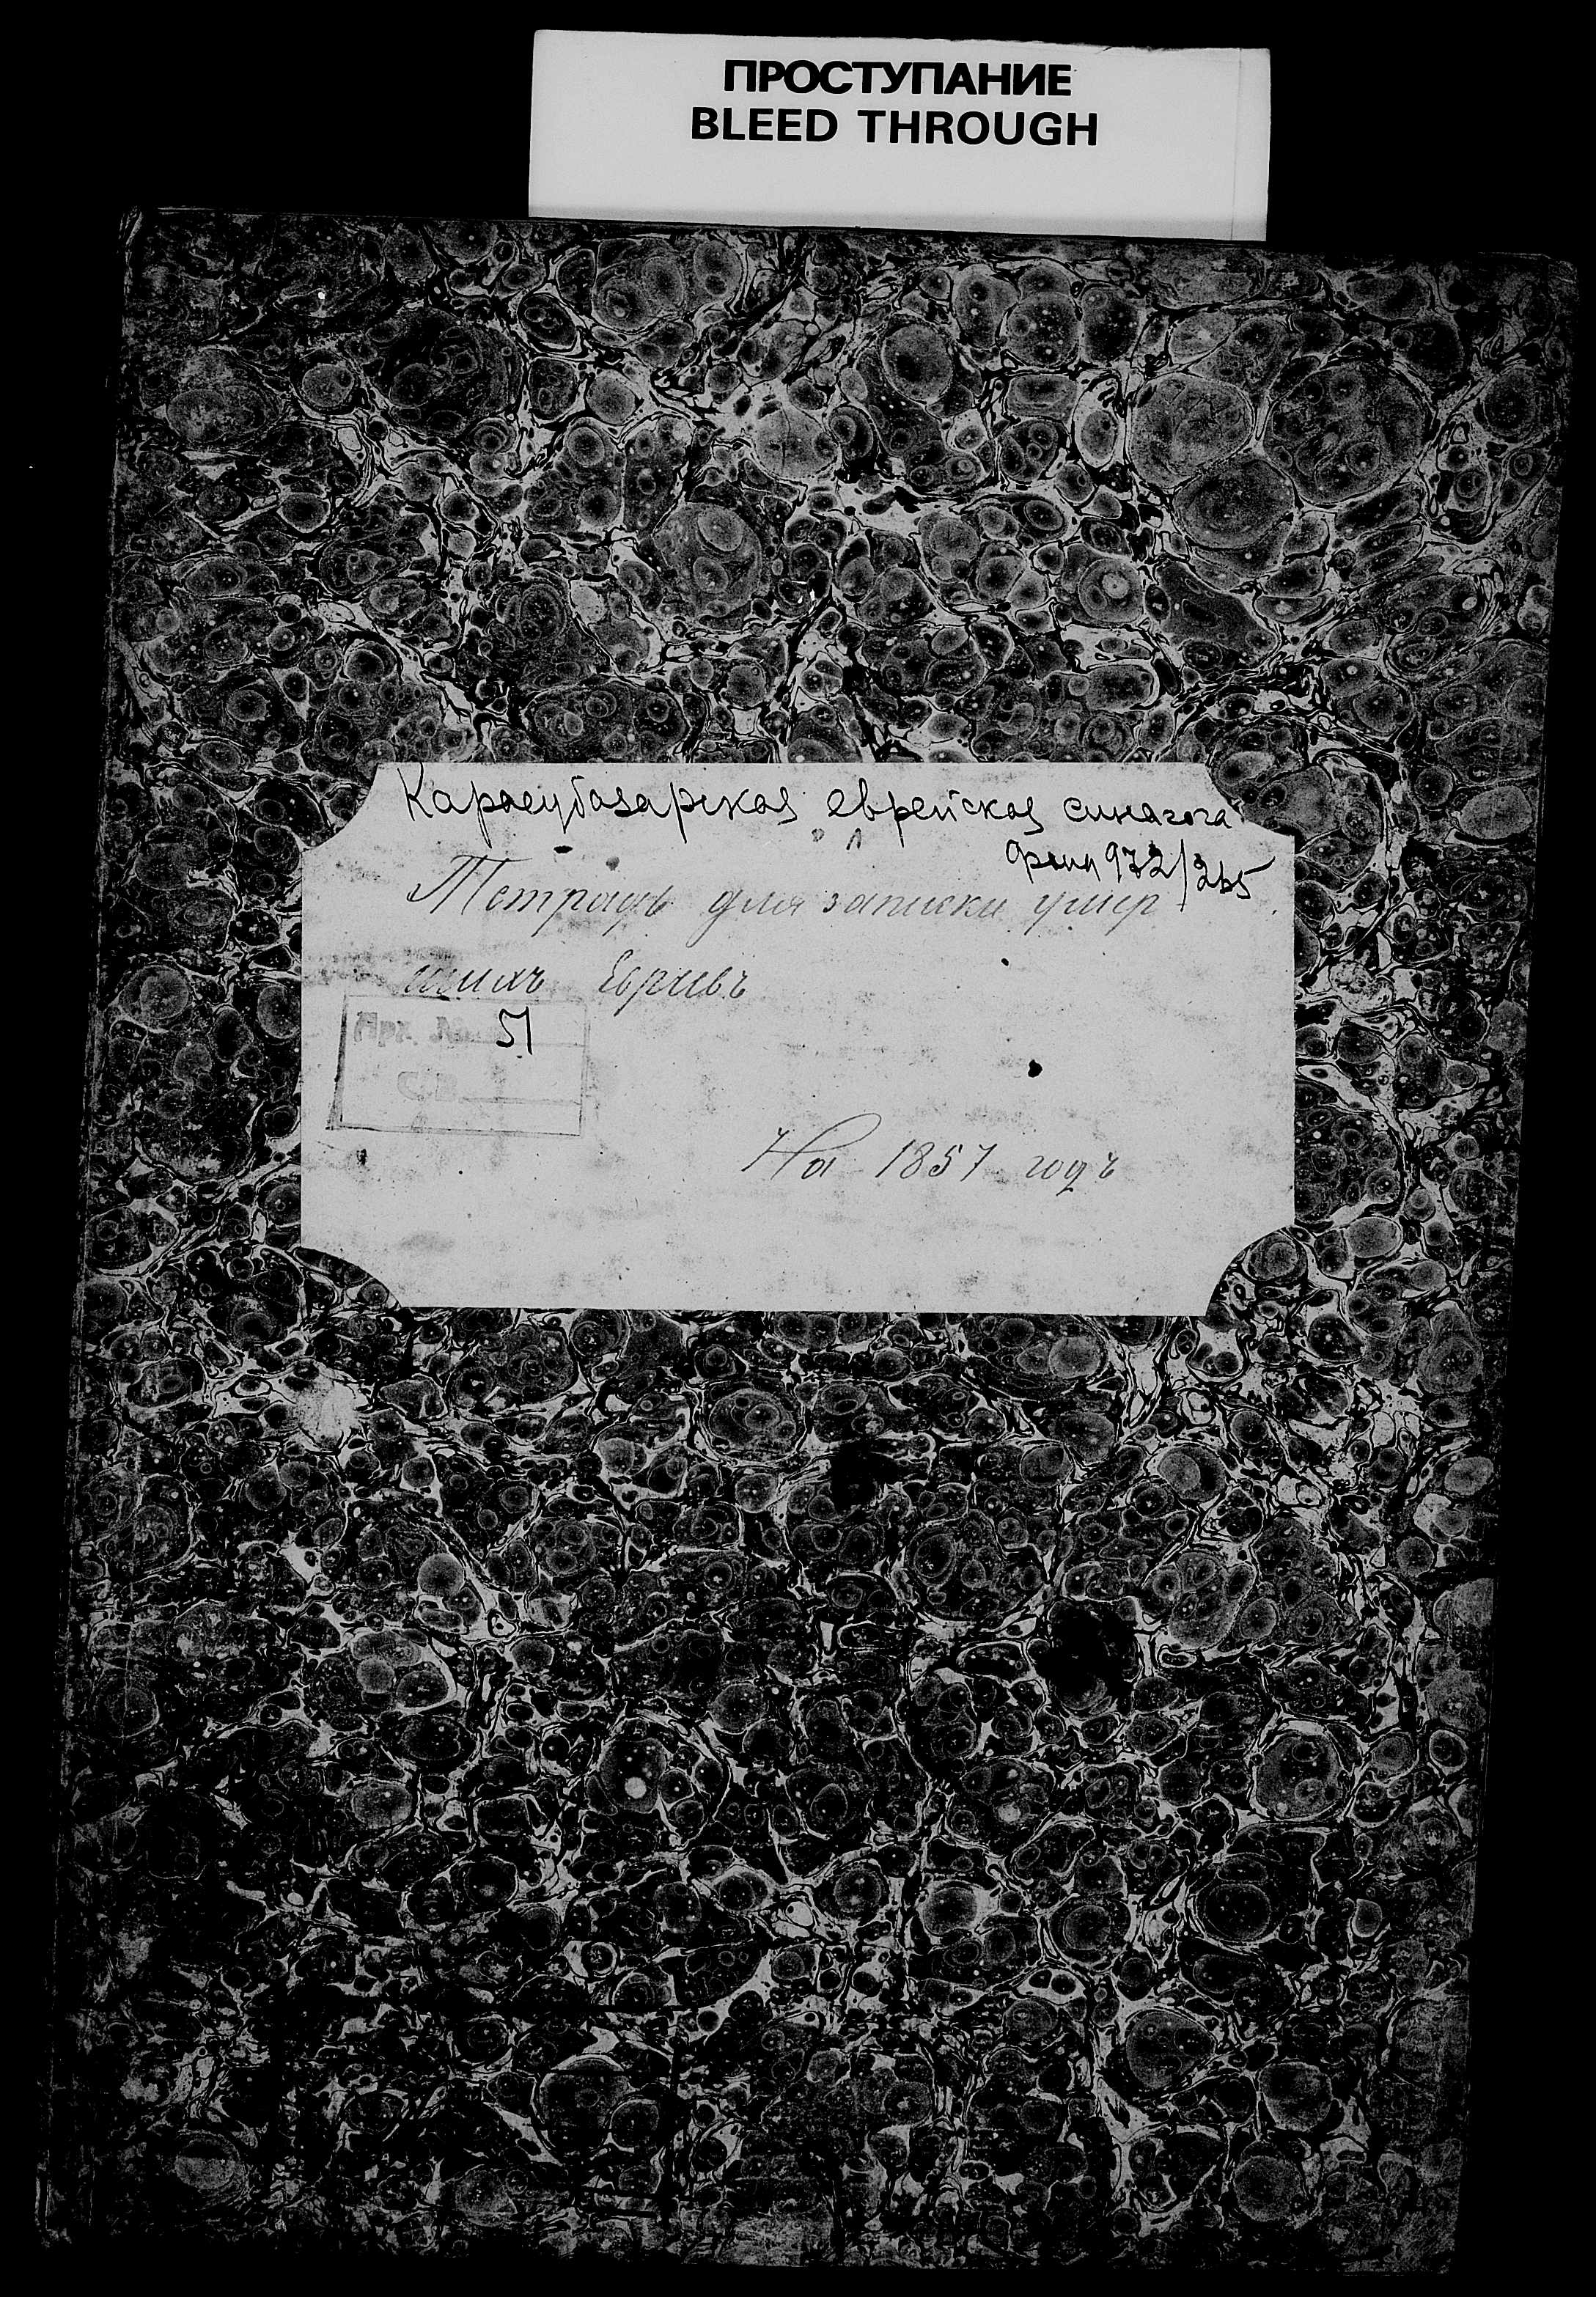 ПРОСТУПАНИЕ
BLEED THROUGH
Карасубазарская еврейская синагога
фонд 972/265
Тетрадь для записки умер
шихъ Евреевъ
Арх. № 51
С.В.
На 1857 годъ